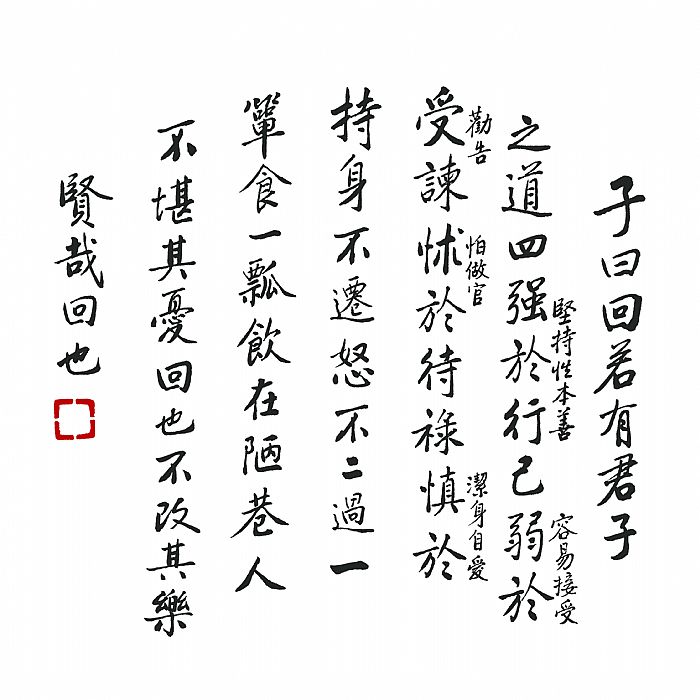 子曰回若有君子
之道四强於行己弱於
堅持性本善
容易接受
受諫怵於待祿慎於
勸告
怕做官
潔身自愛
持身不遷怒不二過一
簞食一瓢飲在陋巷人
不堪其憂回也不改其樂
賢哉回也